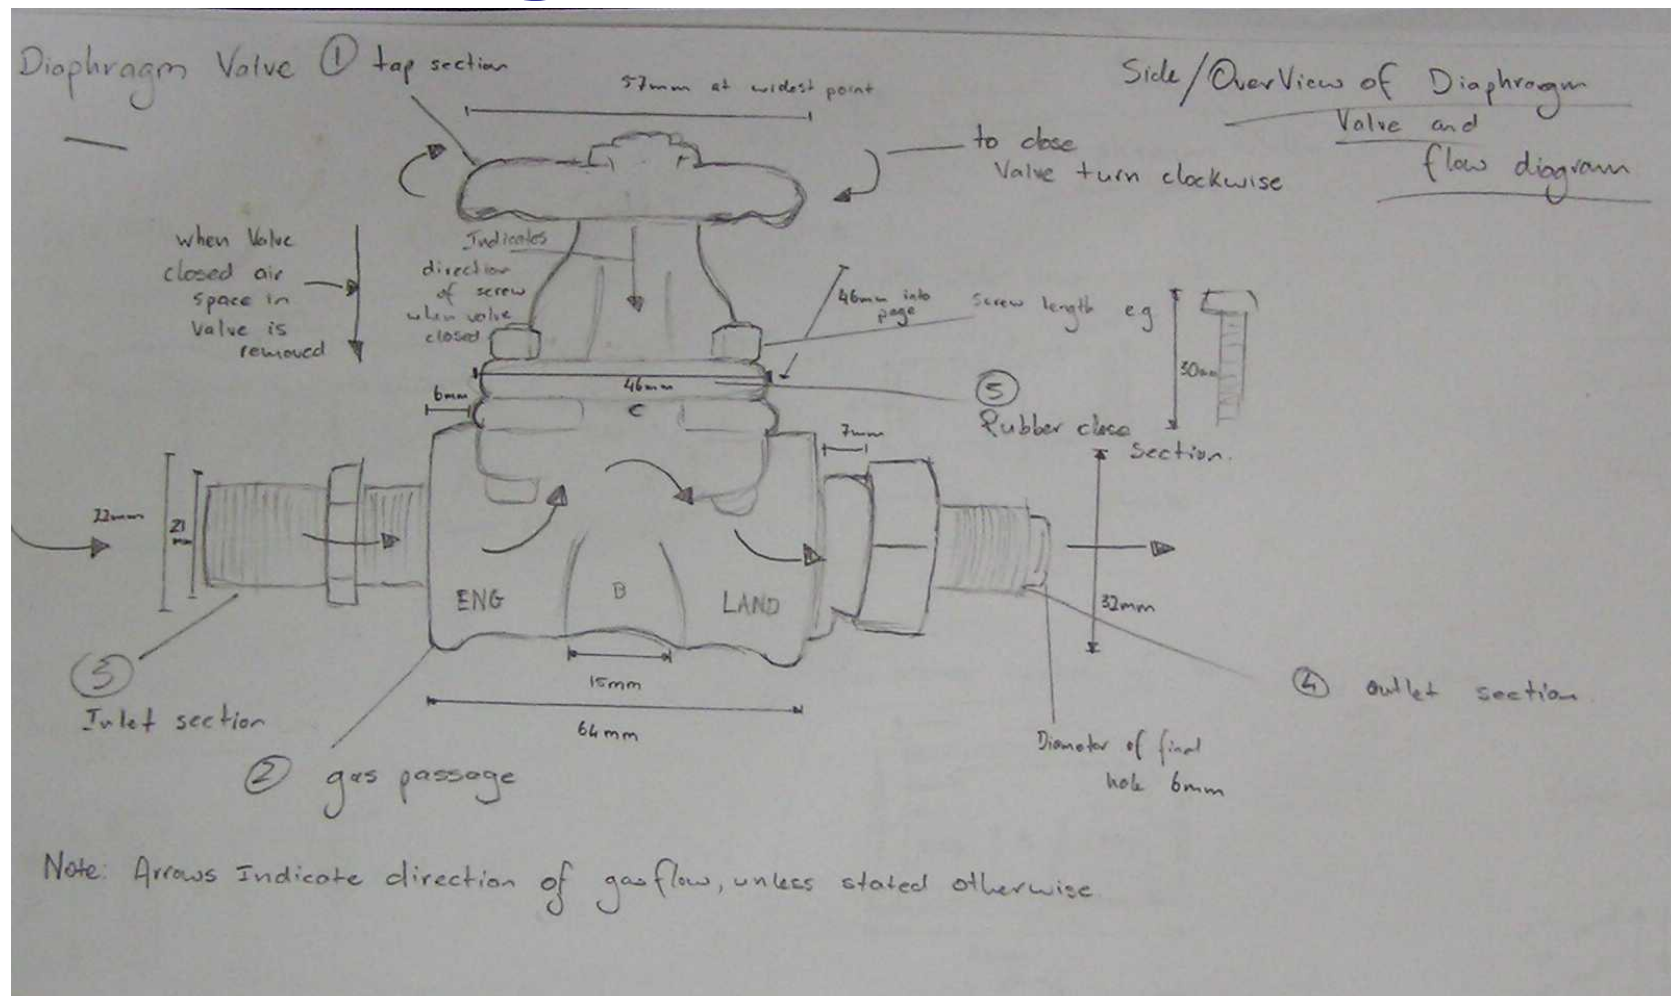 Diaphragm Valve ① tap section
57mm at widest point
Side/OverView of Diaphragm
Valve and
flow diagram
to close
Valve turn clockwise
when Valve
closed air
space in
Valve is
removed
Indicates
direction
of screw
when valve
closed
46mm into
page
screw length eg
30mm
46mm
6mm
C
⑤
Rubber close
section.
7mm
22mm
21
mm
ENG
B
LAND
32mm
③
Inlet section
15mm
64mm
④ outlet section
② gas passage
Diameter of final
hole 6mm
Note: Arrows Indicate direction of gas flow, unless stated otherwise